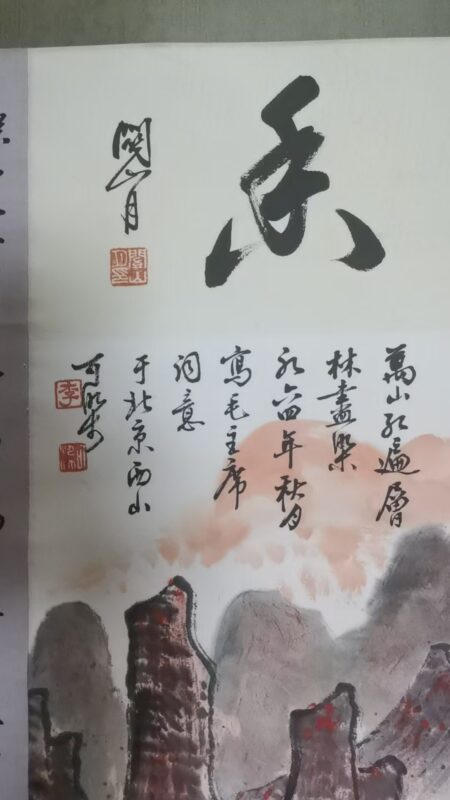 關山月
萬山紅遍層
林盡染
九六四年秋月
寫毛主席
詞意
于北京西山
可染
李